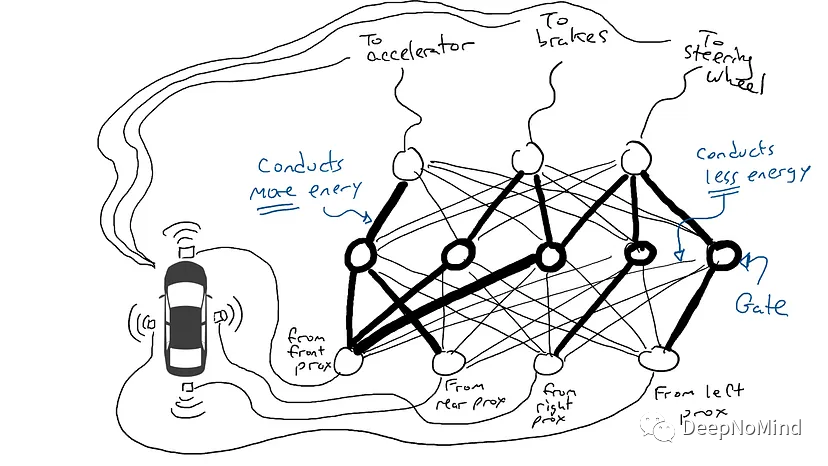 To
accelerator
To
brakes
To
steering
wheel
Conducts
more enery
Conducts
less energy
Gate
from
front
prox
From
rear prox
from
right
prox
From left
prox
DeepNoMind